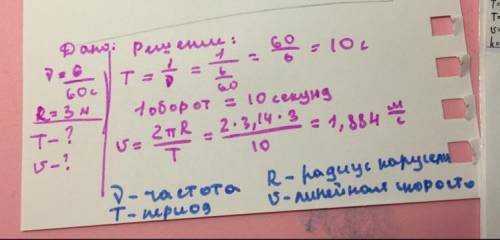 Дано:
ν = 6/60c
R = 3 м
T - ?
υ - ?
Решение:
T = 1/ν = 1/(6/60) = 60/6 = 10 c
1 оборот = 10 секунд
υ = 2πR/T = 2·3,14·3/10 = 1,884 м/с
ν - частота
T - период
R - радиус карусели
υ - линейная скорость